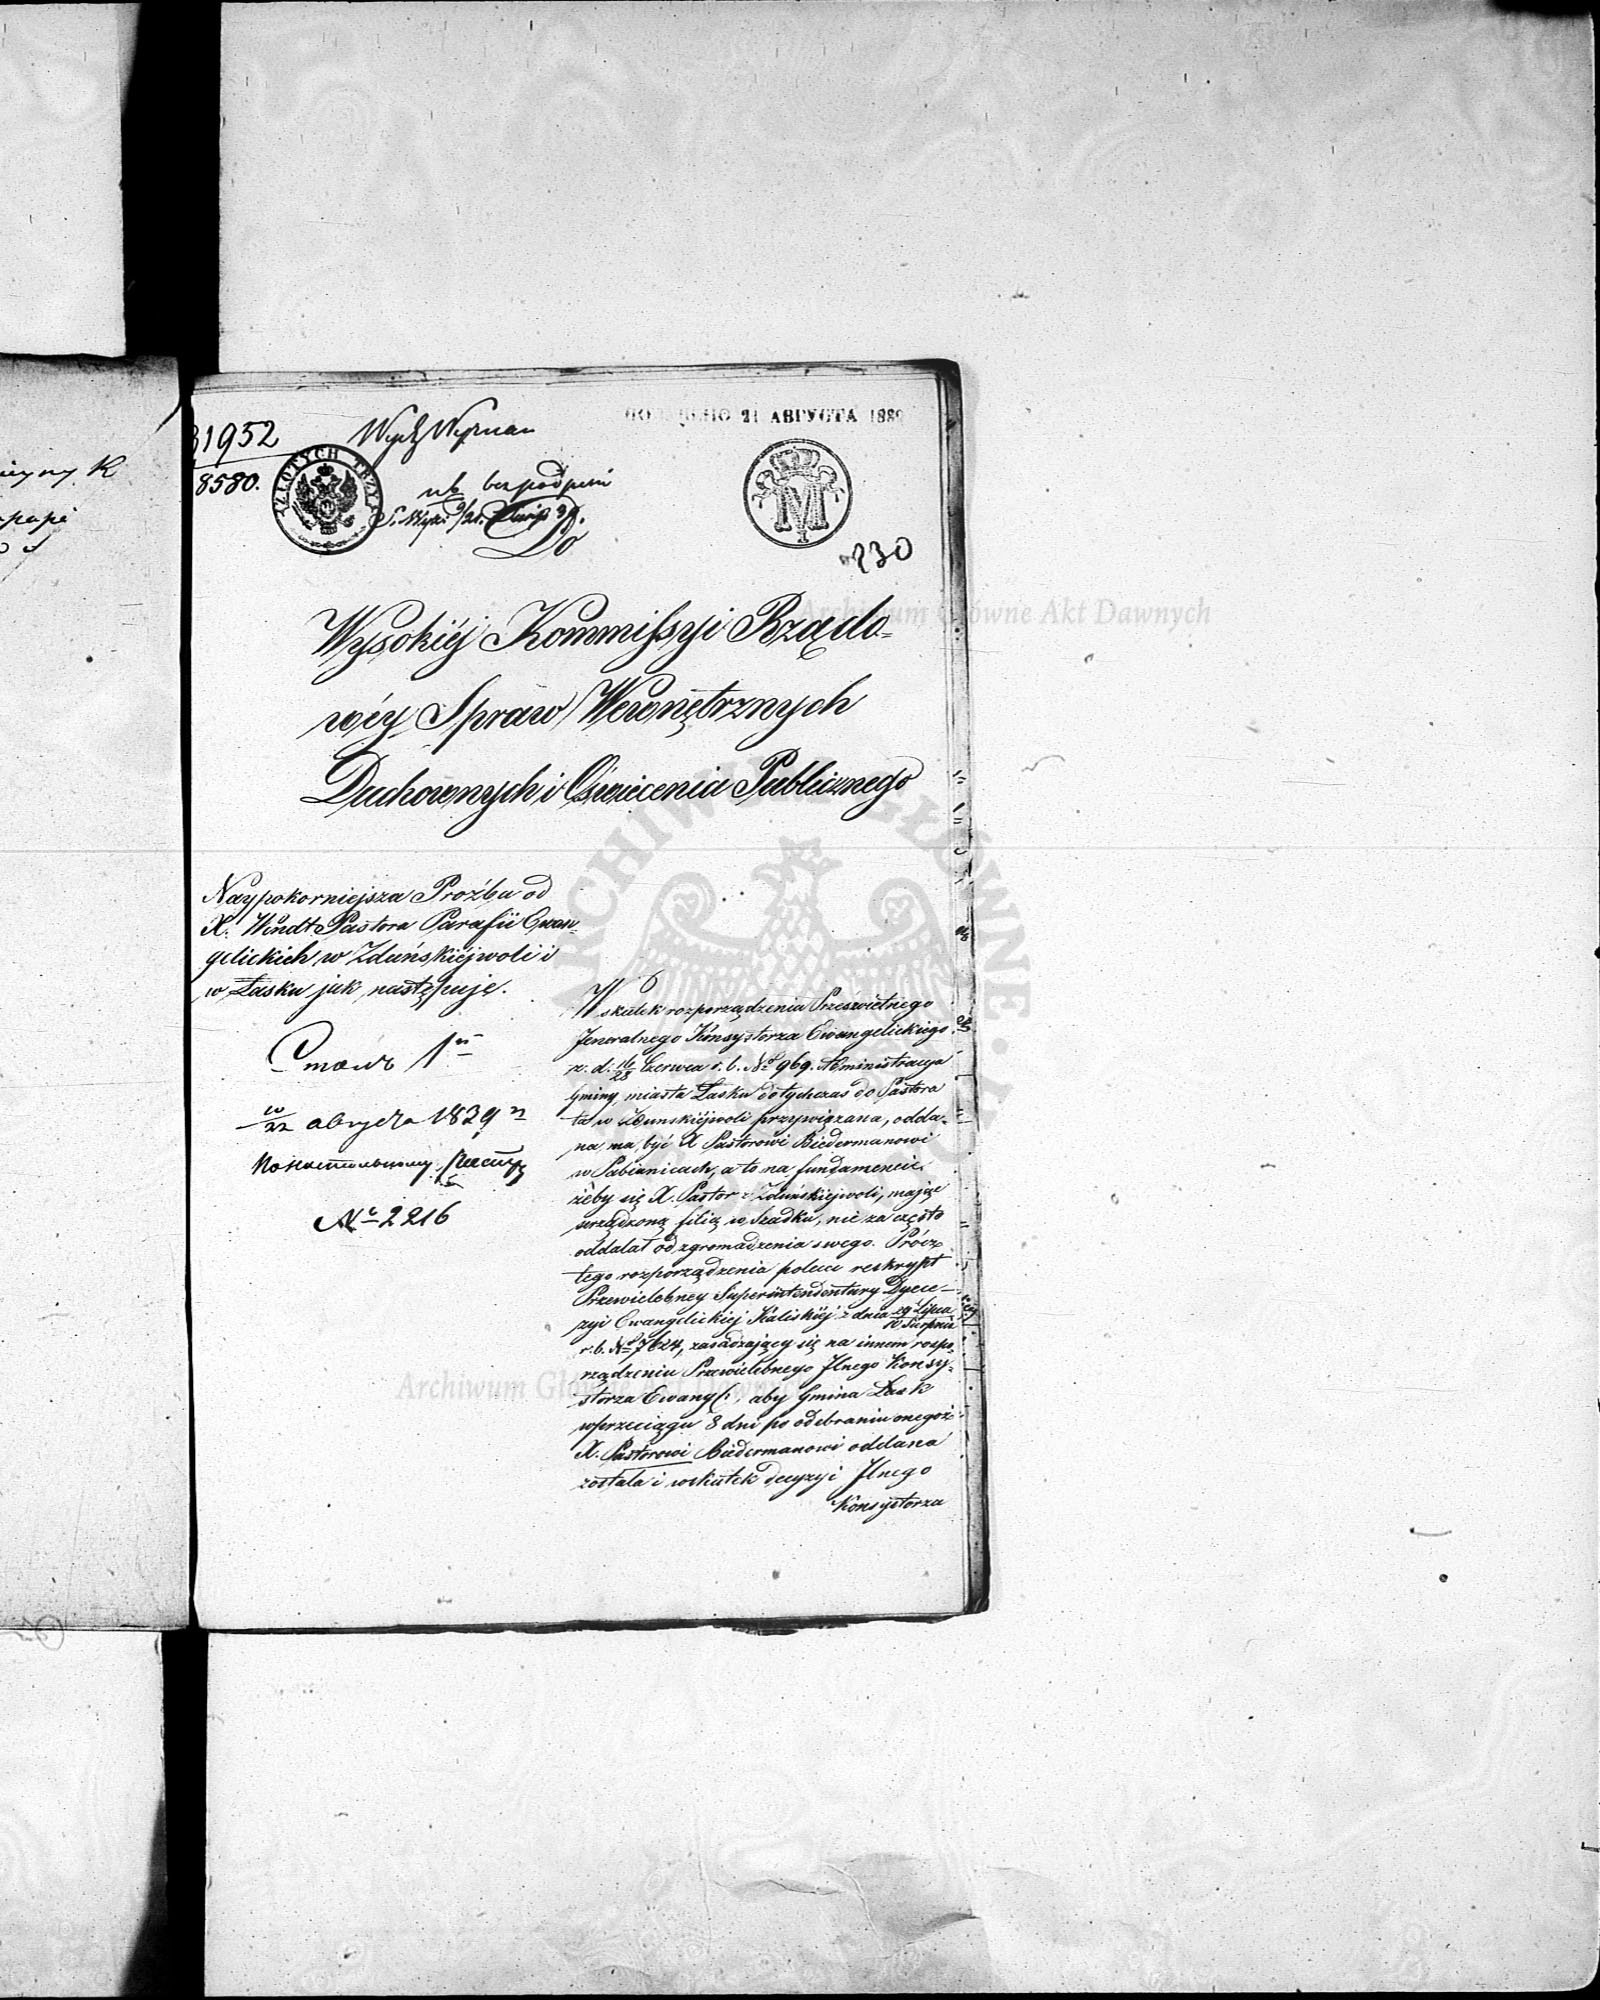 31952
8580.
Wydz Wyznań
ПОЛУЧЕНО 21 АВГУСТА 1839
ZŁOTYCH TRZY
bez podpisu
M
I
230
Do
Wysokiéj Kommissyi Rządo-
wéy Spraw Wewnętrznych
Duchownych i Oświecenia Publicznego
Naypokorniejsza Proźba od
X. Windt Pastora Parafii Ewan-
gelickich w Zduńskiéjwoli i
w Łasku jak następuje.
августа 1839
№ 2216
Wskutek rozporządzenia Prześwietnego
Jeneralnego Konsystorza Ewangelickiego
z. d. 16/28 Czerwca r. b. No 969. Administracya
Gminy miasta Łasku dotychczas do Pastora
ta w Zduńskiéjwoli przywiązana, odda-
na ma być X Pastorowi Biedermanowi
w Pabianicach, a to na fundamencie
żeby się X. Pastor z Zduńskiéjwoli, mając
urządzoną filią w Szadku, nie za często
oddalał od zgromadzenia swego. Prócz
tego rozporządzenia poleca reskrypt
Przewielebney Superintendentury Dyece-
zyi Ewangelickiéj Kaliskiéj z dnia 29 Lipca/10 Sierpnia
r. b. No 7624, zasadzający się na innem rospo-
rządzeniu Przewielebnego Jlnego Konsy-
storza Ewang: aby Gmina Łask
w przeciągu 8 dni po odebraniu onegoż
X. Pastorowi Biedermanowi oddana
została i wskutek decyzyi Jlnego
Konsystorza
Archiwum Główne Akt Dawnych
Archiwum Główne Akt Dawnych
ARCHIWUM GŁÓWNE